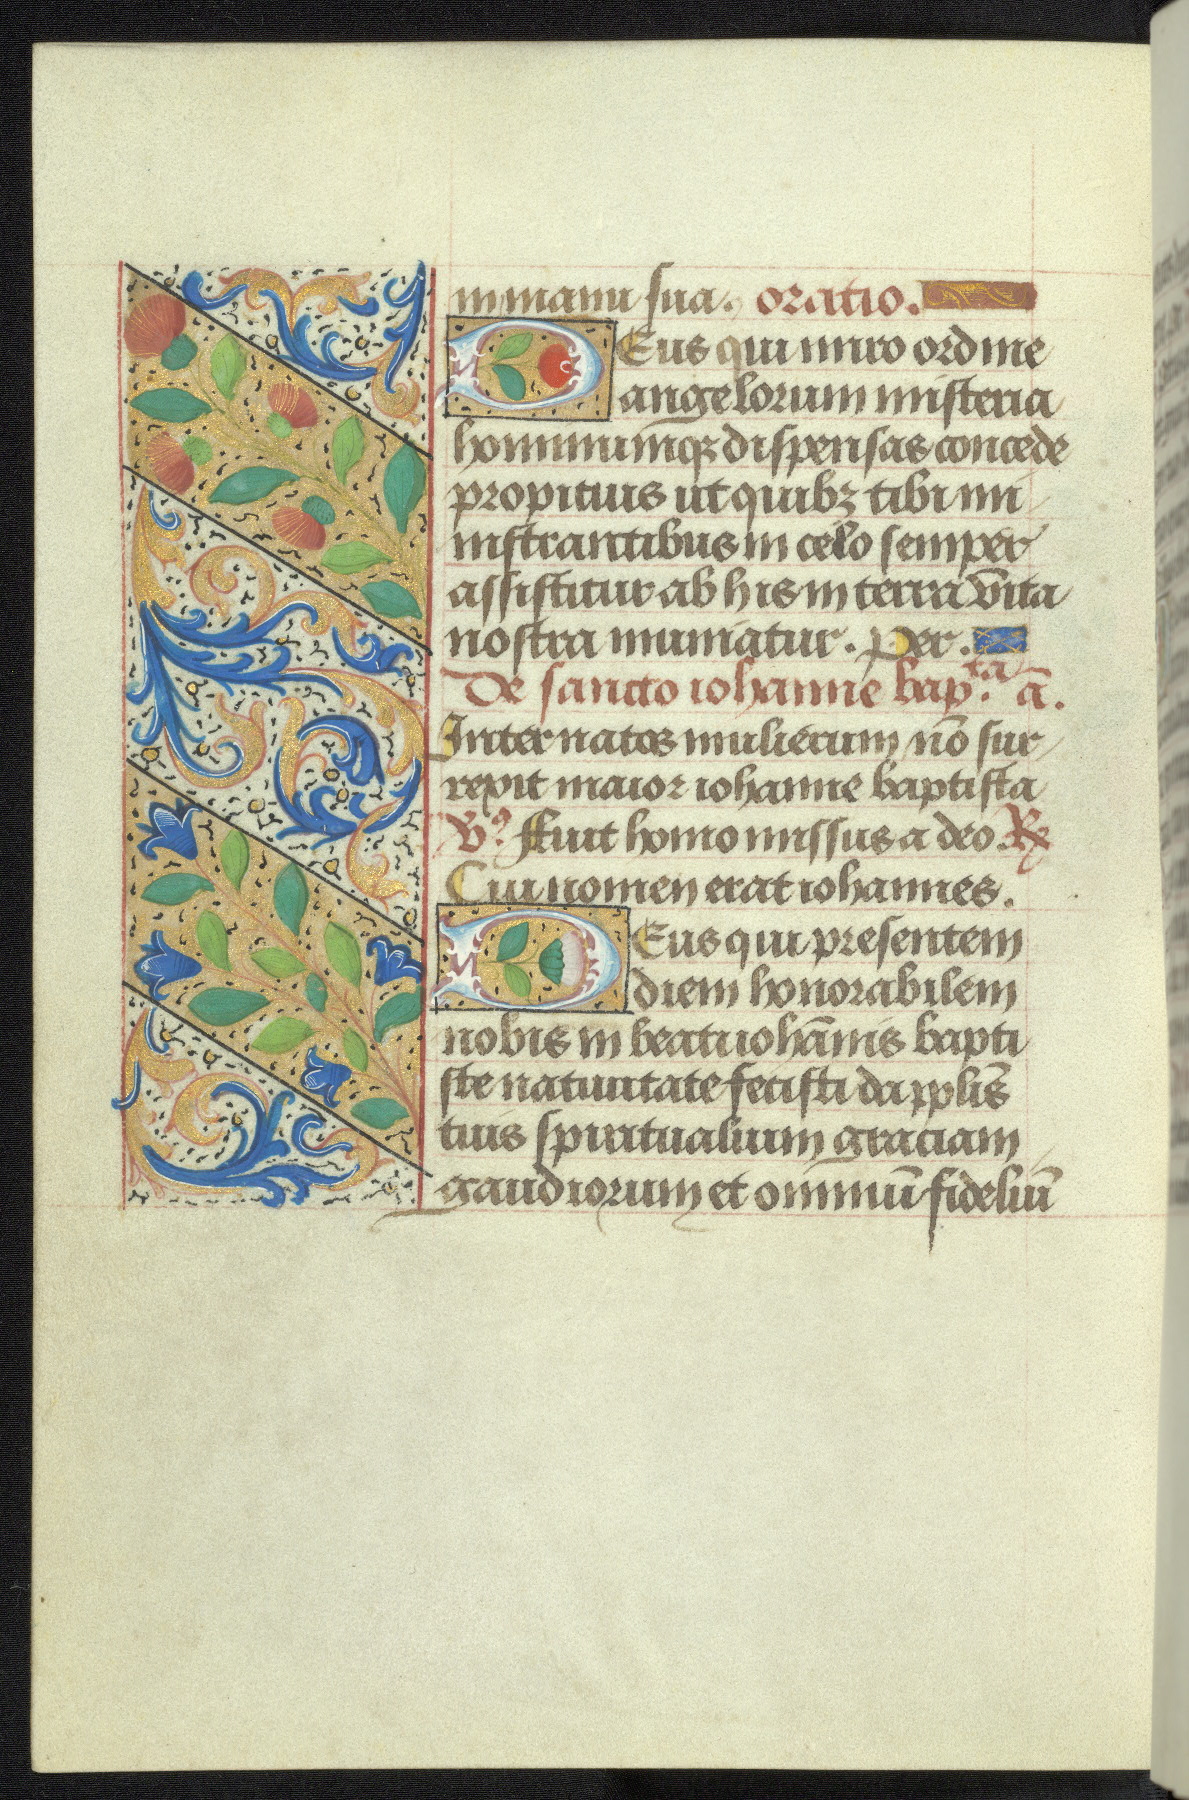 in manu sua. oratio.
Deus qui miro ordine
angelorum misteria
hominumqꝫ dispensas concede
propitius ut quibꝫ tibi mi
nistrantibus in celo semper
assistitur ab his in terra vita
nostra muniatur. Per.
De sancto iohanne bap.ta ā.
Inter natos mulierum nō sur
rexit maior iohanne baptista
V. Fuit homo missus a deo. R
Cui nomen erat iohannes.
Deus qui presentem
diem honorabilem
nobis in beati iohānis bapti
ste natiuitate fecisti da pplīs
tuis spiritualium graciam
gaudiorum et omniū fideliū